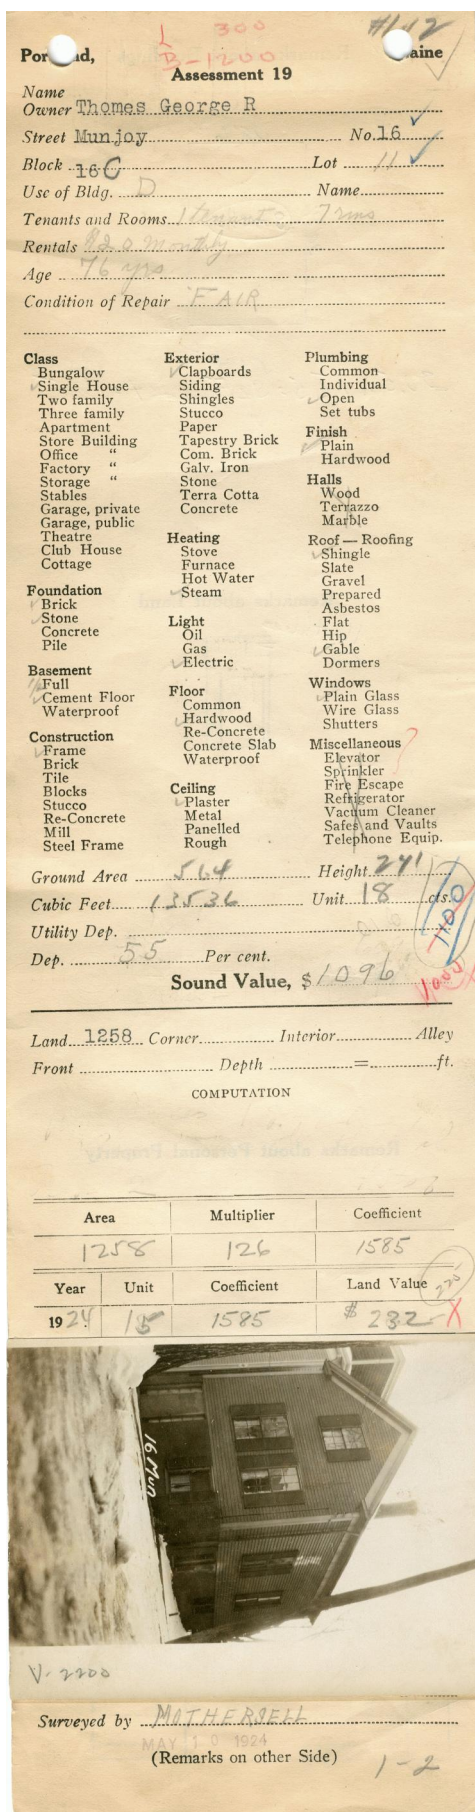 L 300
#1112
B-1200
Portland, Maine
Assessment 19
Name
Owner Thomes George R
Street Munjoy No. 16
Block 16 C Lot 11
Use of Bldg. D Name
Tenants and Rooms 1 tenant 7 rms
Rentals $20 monthly
Age 76 yrs
Condition of Repair FAIR
Class
Bungalow
Single House
Two family
Three family
Apartment
Store Building
Office "
Factory "
Storage "
Stables
Garage, private
Garage, public
Theatre
Club House
Cottage
Foundation
Brick
Stone
Concrete
Pile
Basement
1/2 Full
Cement Floor
Waterproof
Construction
Frame
Brick
Tile
Blocks
Stucco
Re-Concrete
Mill
Steel Frame
Exterior
Clapboards
Siding
Shingles
Stucco
Paper
Tapestry Brick
Com. Brick
Galv. Iron
Stone
Terra Cotta
Concrete
Heating
Stove
Furnace
Hot Water
Steam
Light
Oil
Gas
Electric
Floor
Common
Hardwood
Re-Concrete
Concrete Slab
Waterproof
Ceiling
Plaster
Metal
Panelled
Rough
Plumbing
Common
Individual
Open
Set tubs
Finish
Plain
Hardwood
Halls
Wood
Terrazzo
Marble
Roof — Roofing
Shingle
Slate
Gravel
Prepared
Asbestos
Flat
Hip
Gable
Dormers
Windows
Plain Glass
Wire Glass
Shutters
Miscellaneous ?
Elevator
Sprinkler
Fire Escape
Refrigerator
Vacuum Cleaner
Safes and Vaults
Telephone Equip.
Ground Area 564 Height 24'
Cubic Feet 13536 Unit 18 cts.
1100
Utility Dep.
Dep. 55 Per cent.
1000
Sound Value, $ 1096
Land 1258 Corner Interior Alley
Front Depth = ft.
COMPUTATION
Area Multiplier Coefficient
1258 126 1585
Year Unit Coefficient Land Value 225
1924 15 1585 $ 232 X
16 Mun
V-2200
Surveyed by MOTHERSELL
MAY 10 1924
(Remarks on other Side)
1-2